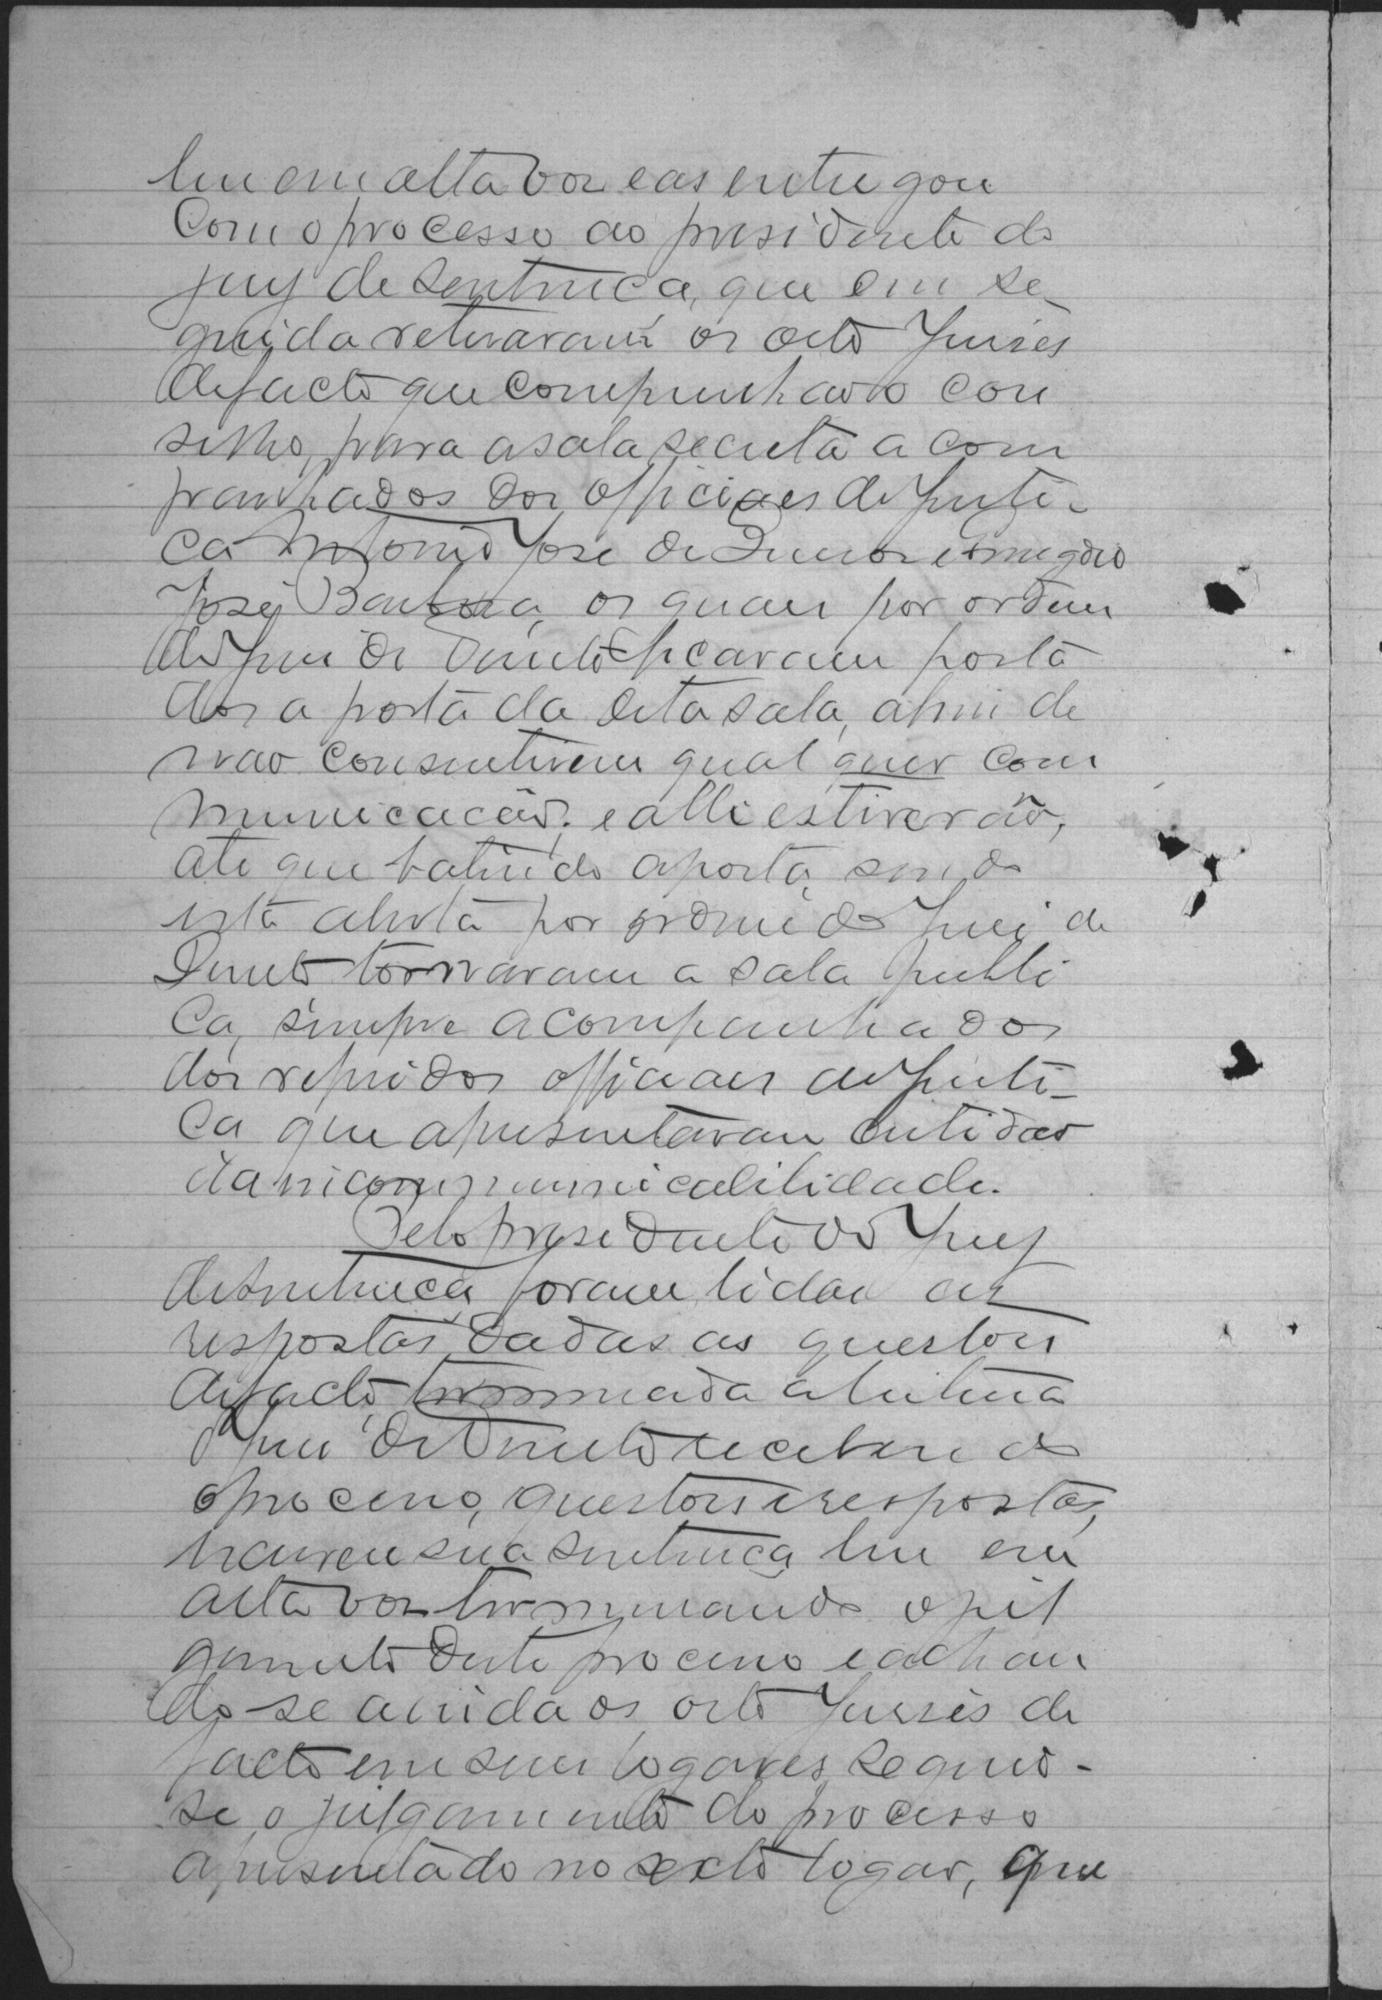 leu em alta voz e as entregou
com o processo ao presidente do
jury de sentença, que em se-
guida retiraram os oito Juises
de facto que compunhão o con
selho, para a sala secreta acom
panhados dos officiaes de Justi-
ça Antonio José de
José Barbosa, os quaes por ordem
do Juiz de Direito ficaram posta
dos a porta da dita sala, afim de
não consentirem qualquer com
municação; e alli estiverão,
até que batendo a porta, sendo
esta aberta por ordem do Juiz de
Direito tornaram a sala publi
ca, sempre acompanhados
dos referidos officiaes de Justi-
ça que apresentaram certidão
da incommunicabilidade.
Pelo presidente do Jury
de sentença foram lidas as
respostas dadas as questões
de facto, terminada a leitura
o Juiz de Direito recebendo
o processo, questões e respostas,
lavrou sua sentença leu em
alta voz terminando o jul
gamento deste processo e achan
do-se ainda os oito Juises de
facto em seus logares seguio-
se o julgamento do processo
apresentado no sexto logar, que